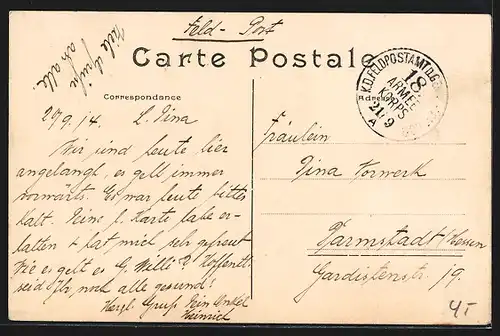 Feld-Post
Viele Grüße
an alle.
Carte Postale
K.D. FELDPOSTAMT D.G.
18
ARMEE
KORPS
21/9
A
Correspondance
Adresse
20/9. 14. L. Tina
Wir sind heute hier
angelangt, es geht immer
vorwärts. Es war heute bitter
kalt. Deine l. Karte habe er-
halten & hat mich sehr gefreut
Wie es geht es G. Willi? Hoffentl.
seid Ihr noch alle gesund!
Herzl. Gruß Dein Onkel
Heinrich
Fräulein
Tina Vorwerk
Darmstadt/Hessen
Gardistenstr. 19.
4,-